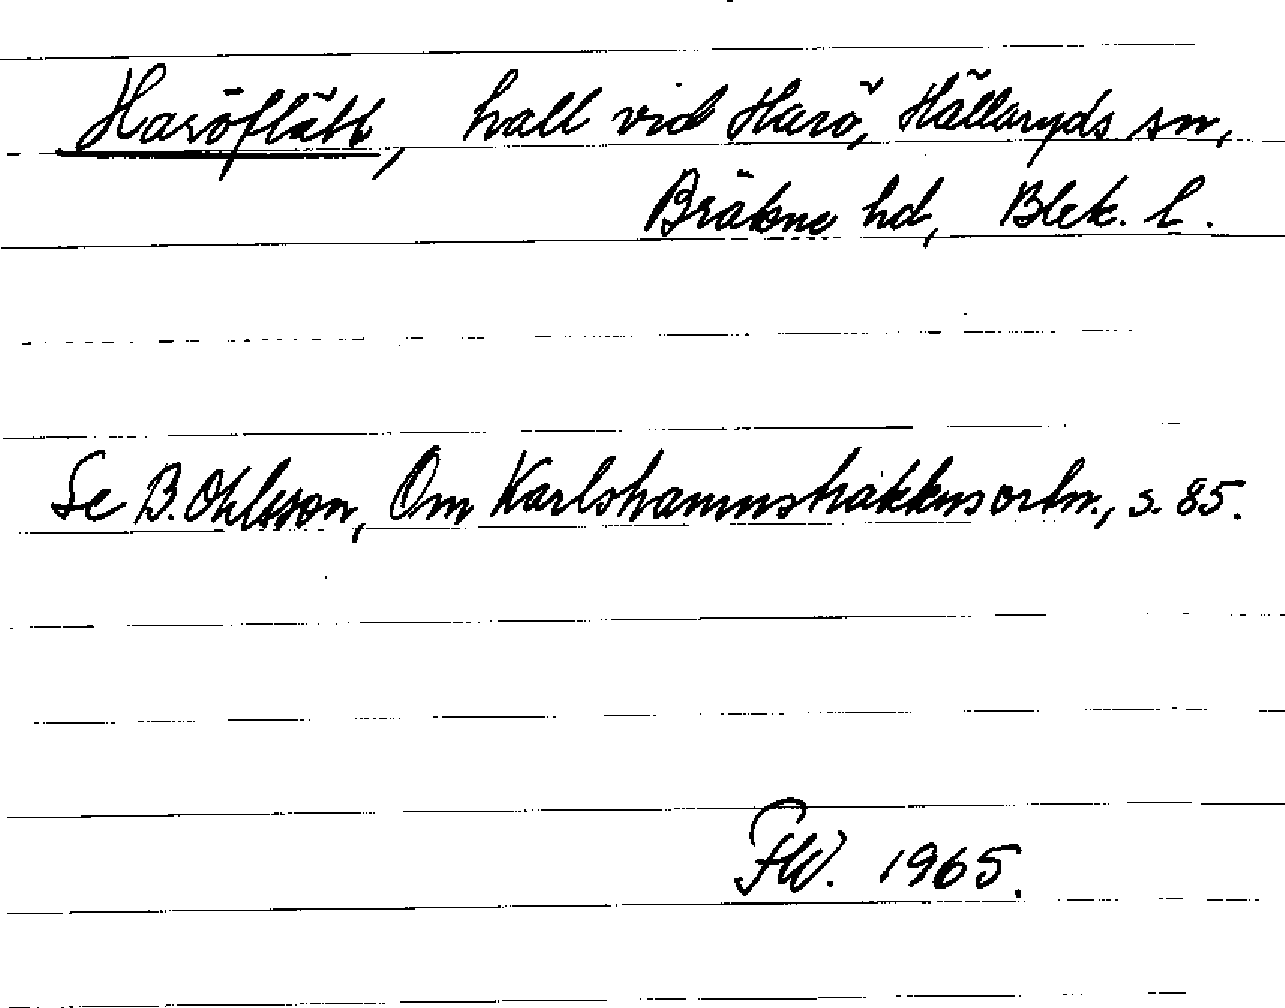 Haröflätt, hall vid Harö, Hällaryds sn,
Bräkne hd, Blek. l.
Se B. Ohlsson, Om Karlshamnstraktens ortn., s. 85.
FW. 1965.